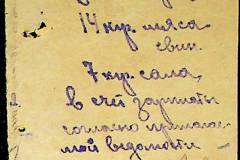 14 кгр. мяса
свин.
7 кгр. сала,
в счет зарплаты
согласно прилагае-
мой ведомости –